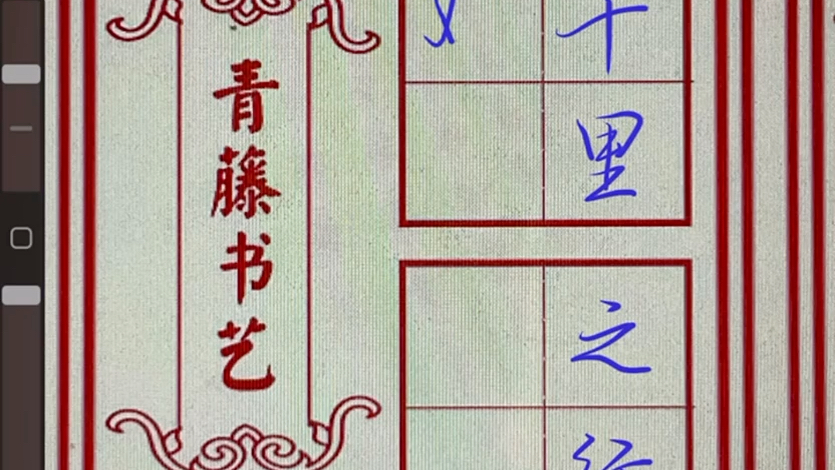 千里之行
青藤书艺